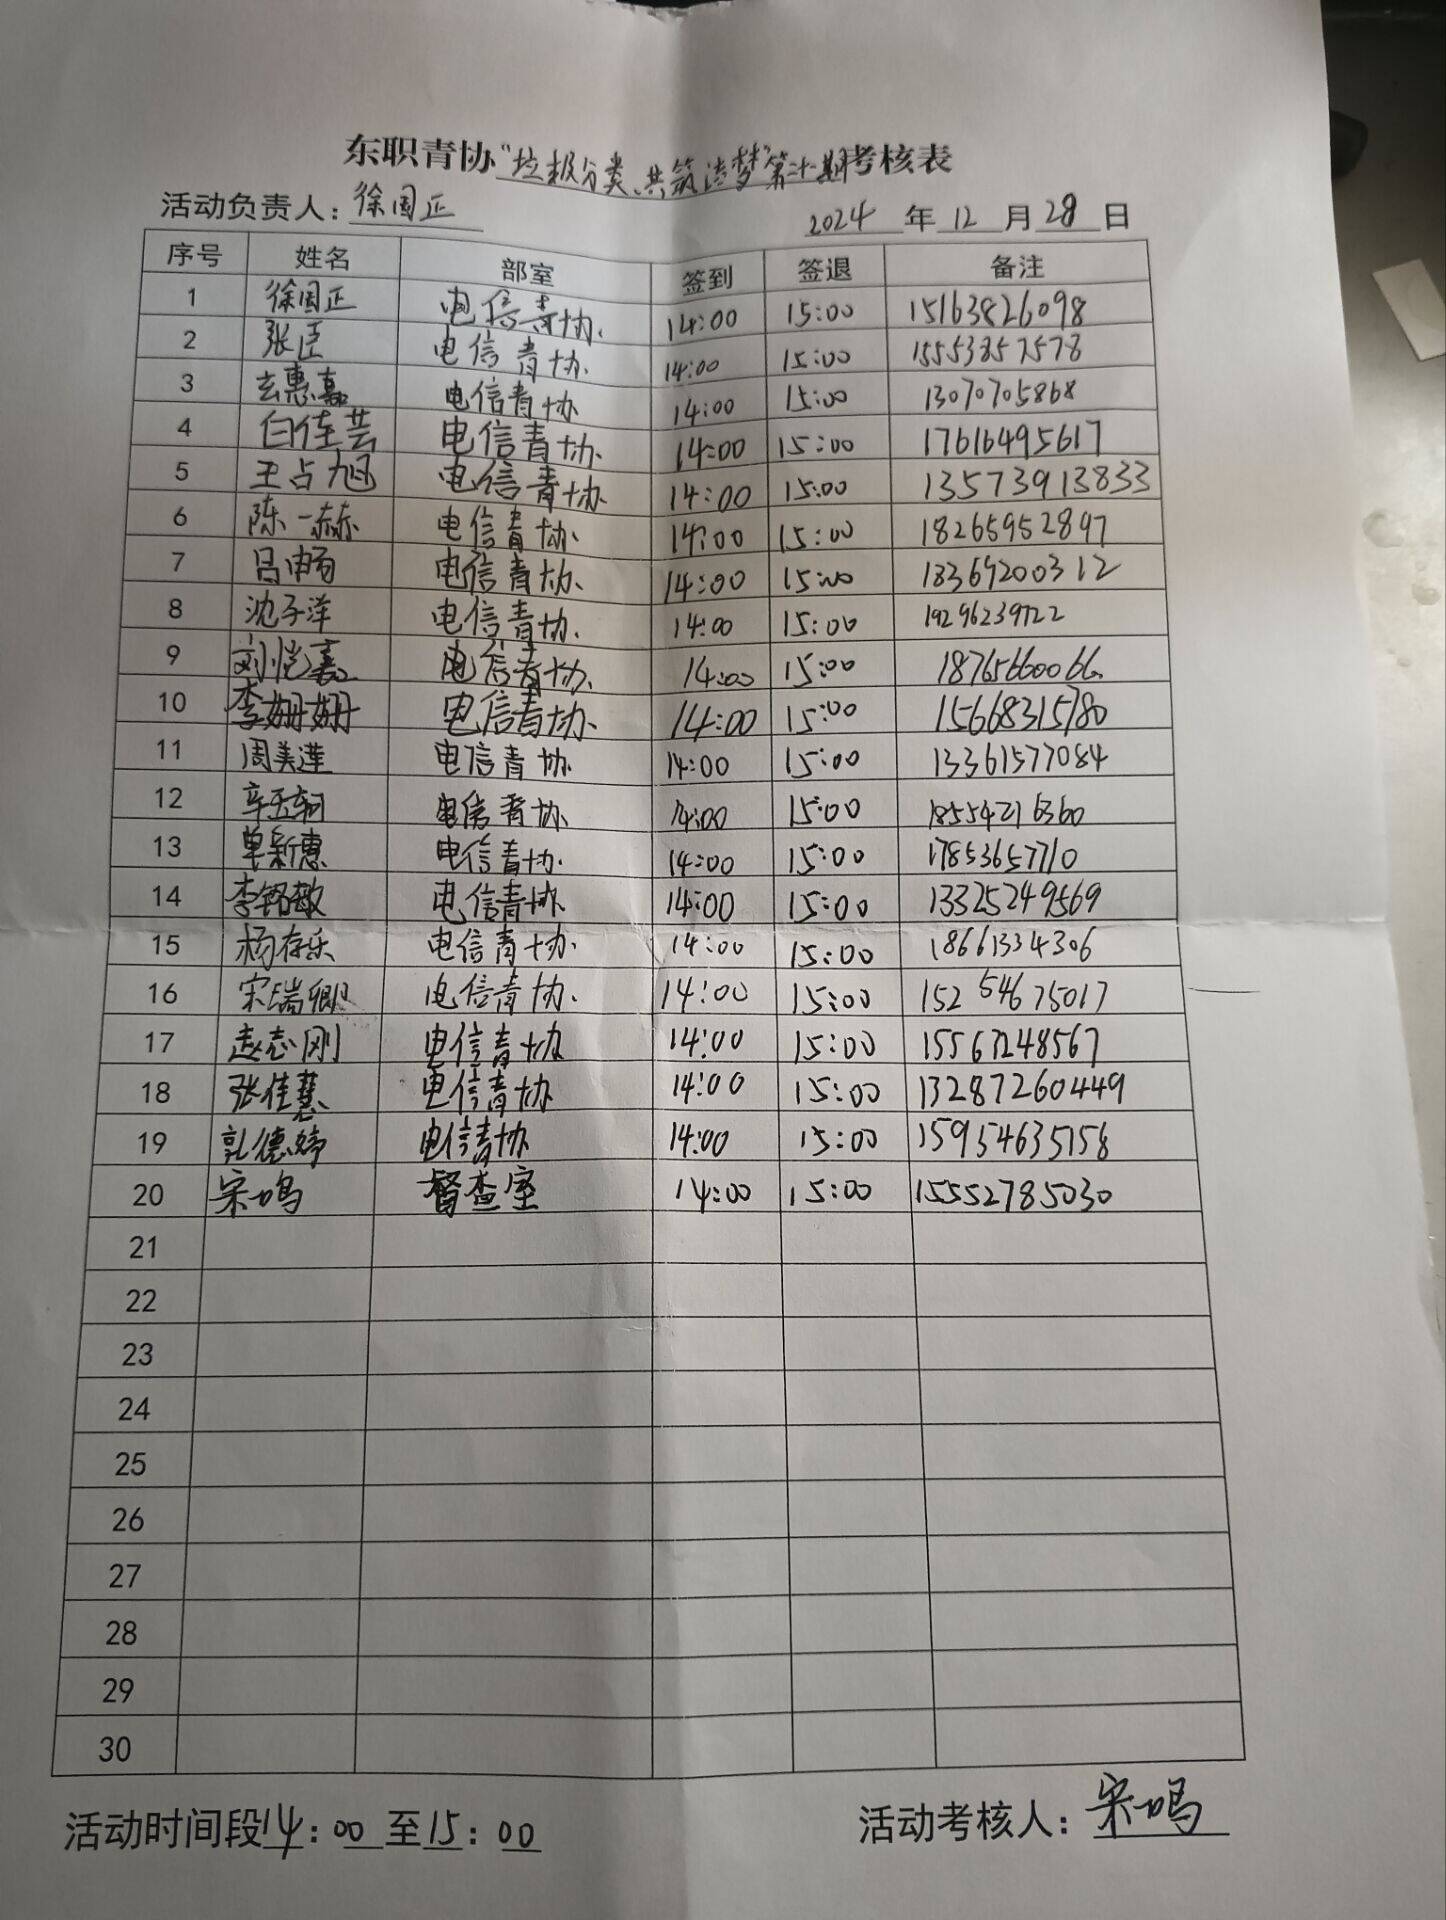 东职青协“垃圾分类、共筑洁梦”第二十期考核表
活动负责人：徐国正 2024 年 12 月 28 日
序号 姓名 部室 签到 签退 备注
1 徐国正 电信青协 14:00 15:00 15163826098
2 张臣 电信青协 14:00 15:00 15553857578
3 玄惠嘉 电信青协 14:00 15:00 13070705868
4 白佳芸 电信青协 14:00 15:00 17616495617
5 王占旭 电信青协 14:00 15:00 13573913833
6 陈一赫 电信青协 14:00 15:00 18265952897
7 吕申旸 电信青协 14:00 15:00 18369200312
8 沈子洋 电信青协 14:00 15:00 19296239722
9 刘恺嘉 电信青协 14:00 15:00 18765660066
10 李姗姗 电信青协 14:00 15:00 15668315780
11 周美莲 电信青协 14:00 15:00 13361577084
12 辛玉轲 电信青协 14:00 15:00 18554216360
13 单新惠 电信青协 14:00 15:00 17853657710
14 李铭敏 电信青协 14:00 15:00 13325249569
15 杨存乐 电信青协 14:00 15:00 18661334306
16 宋瑞卿 电信青协 14:00 15:00 15254675017
17 赵志刚 电信青协 14:00 15:00 15563248567
18 张佳慧 电信青协 14:00 15:00 13287260449
19 郭德婷 电信青协 14:00 15:00 15954635158
20 宋一鸣 督查室 14:00 15:00 15552785030
21
22
23
24
25
26
27
28
29
30
活动时间段14：00至15：00 活动考核人：宋一鸣